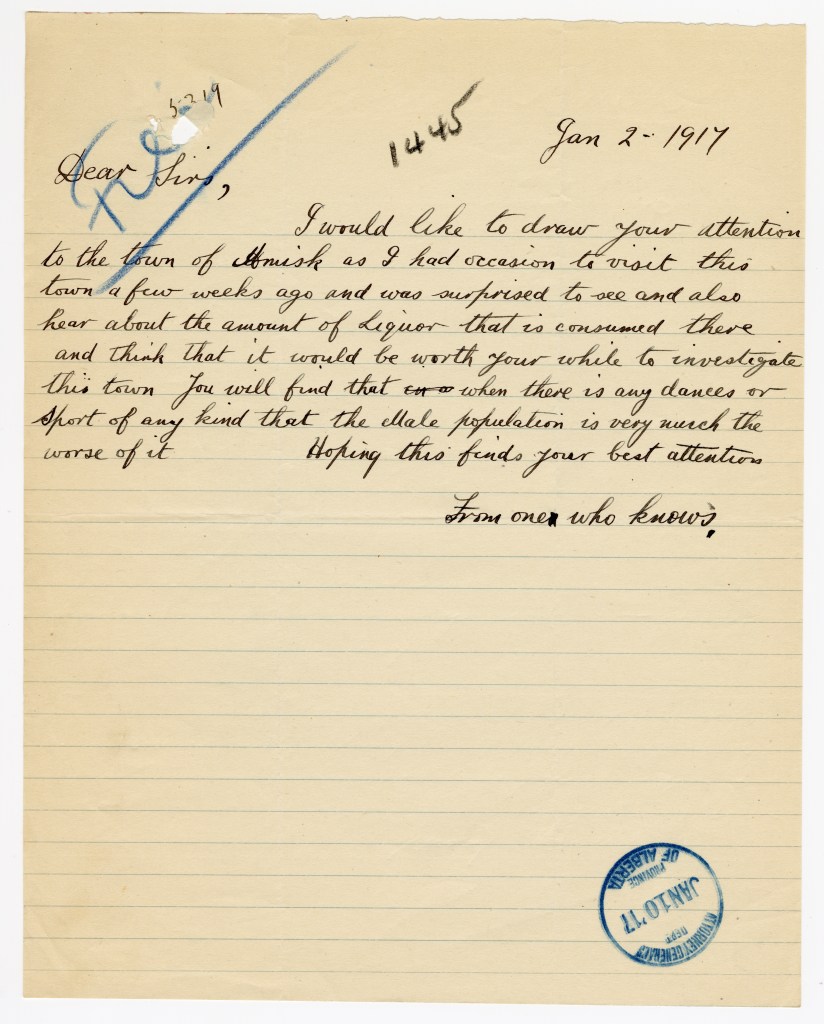 5219
1445
Jan 2 - 1917
Dear Sirs,
I would like to draw your attention
to the town of Amisk as I had occasion to visit this
town a few weeks ago and was surprised to see and also
hear about the amount of Liquor that is consumed there
and think that it would be worth your while to investigate
this town You will find that when there is any dances or
Sport of any kind that the Male population is very much the
worse of it Hoping this finds your best attention
From one who knows.
ATTORNEY GENERAL'S
DEPT
JAN 10 '17
PROVINCE
OF ALBERTA